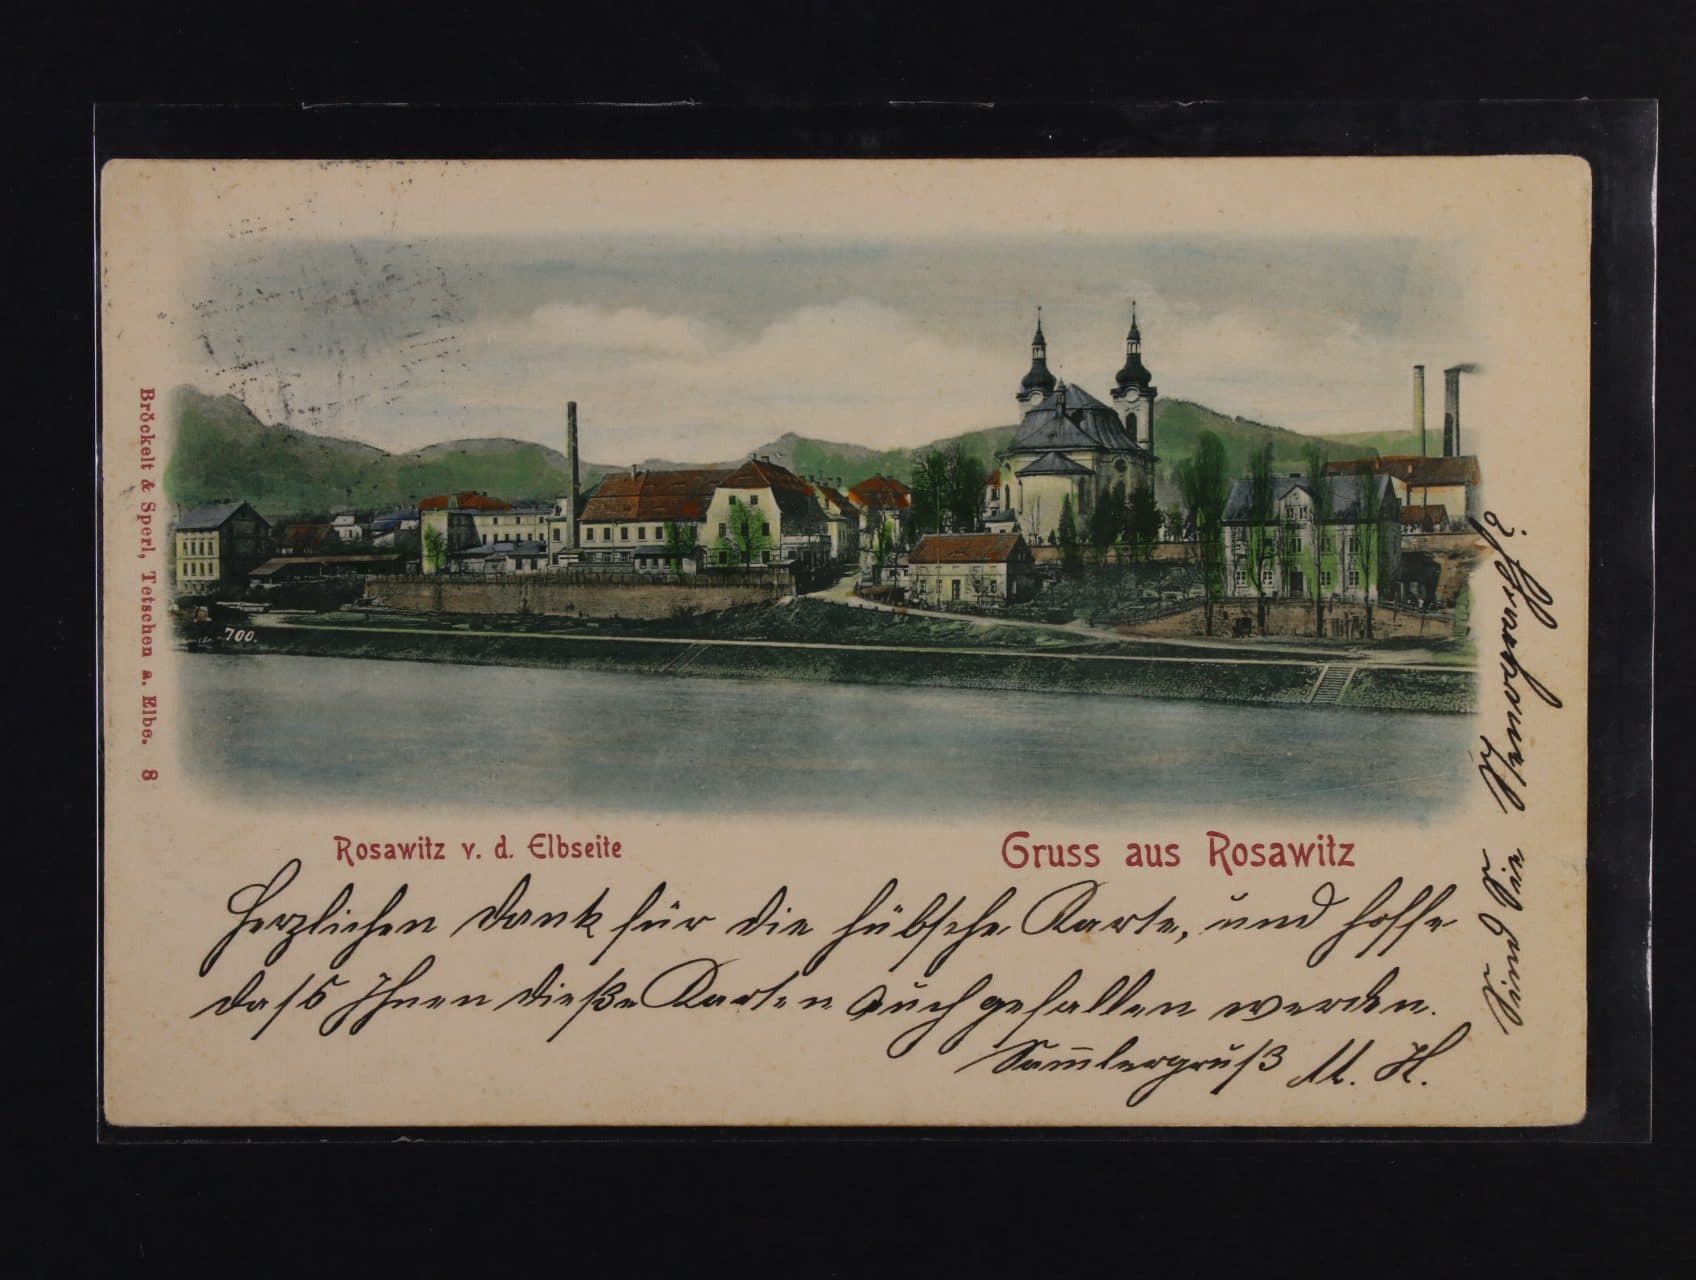 Bröckelt & Sperl, Tetschen a. Elbe. 8
700.
Rosawitz v. d. Elbseite
Gruss aus Rosawitz
Herzlichen Dank für die hübsche Karte, und hoffe
dass Ihnen dieße Karten auch gefallen werden.
Sam̅lergruß M. H.
Sind Sie